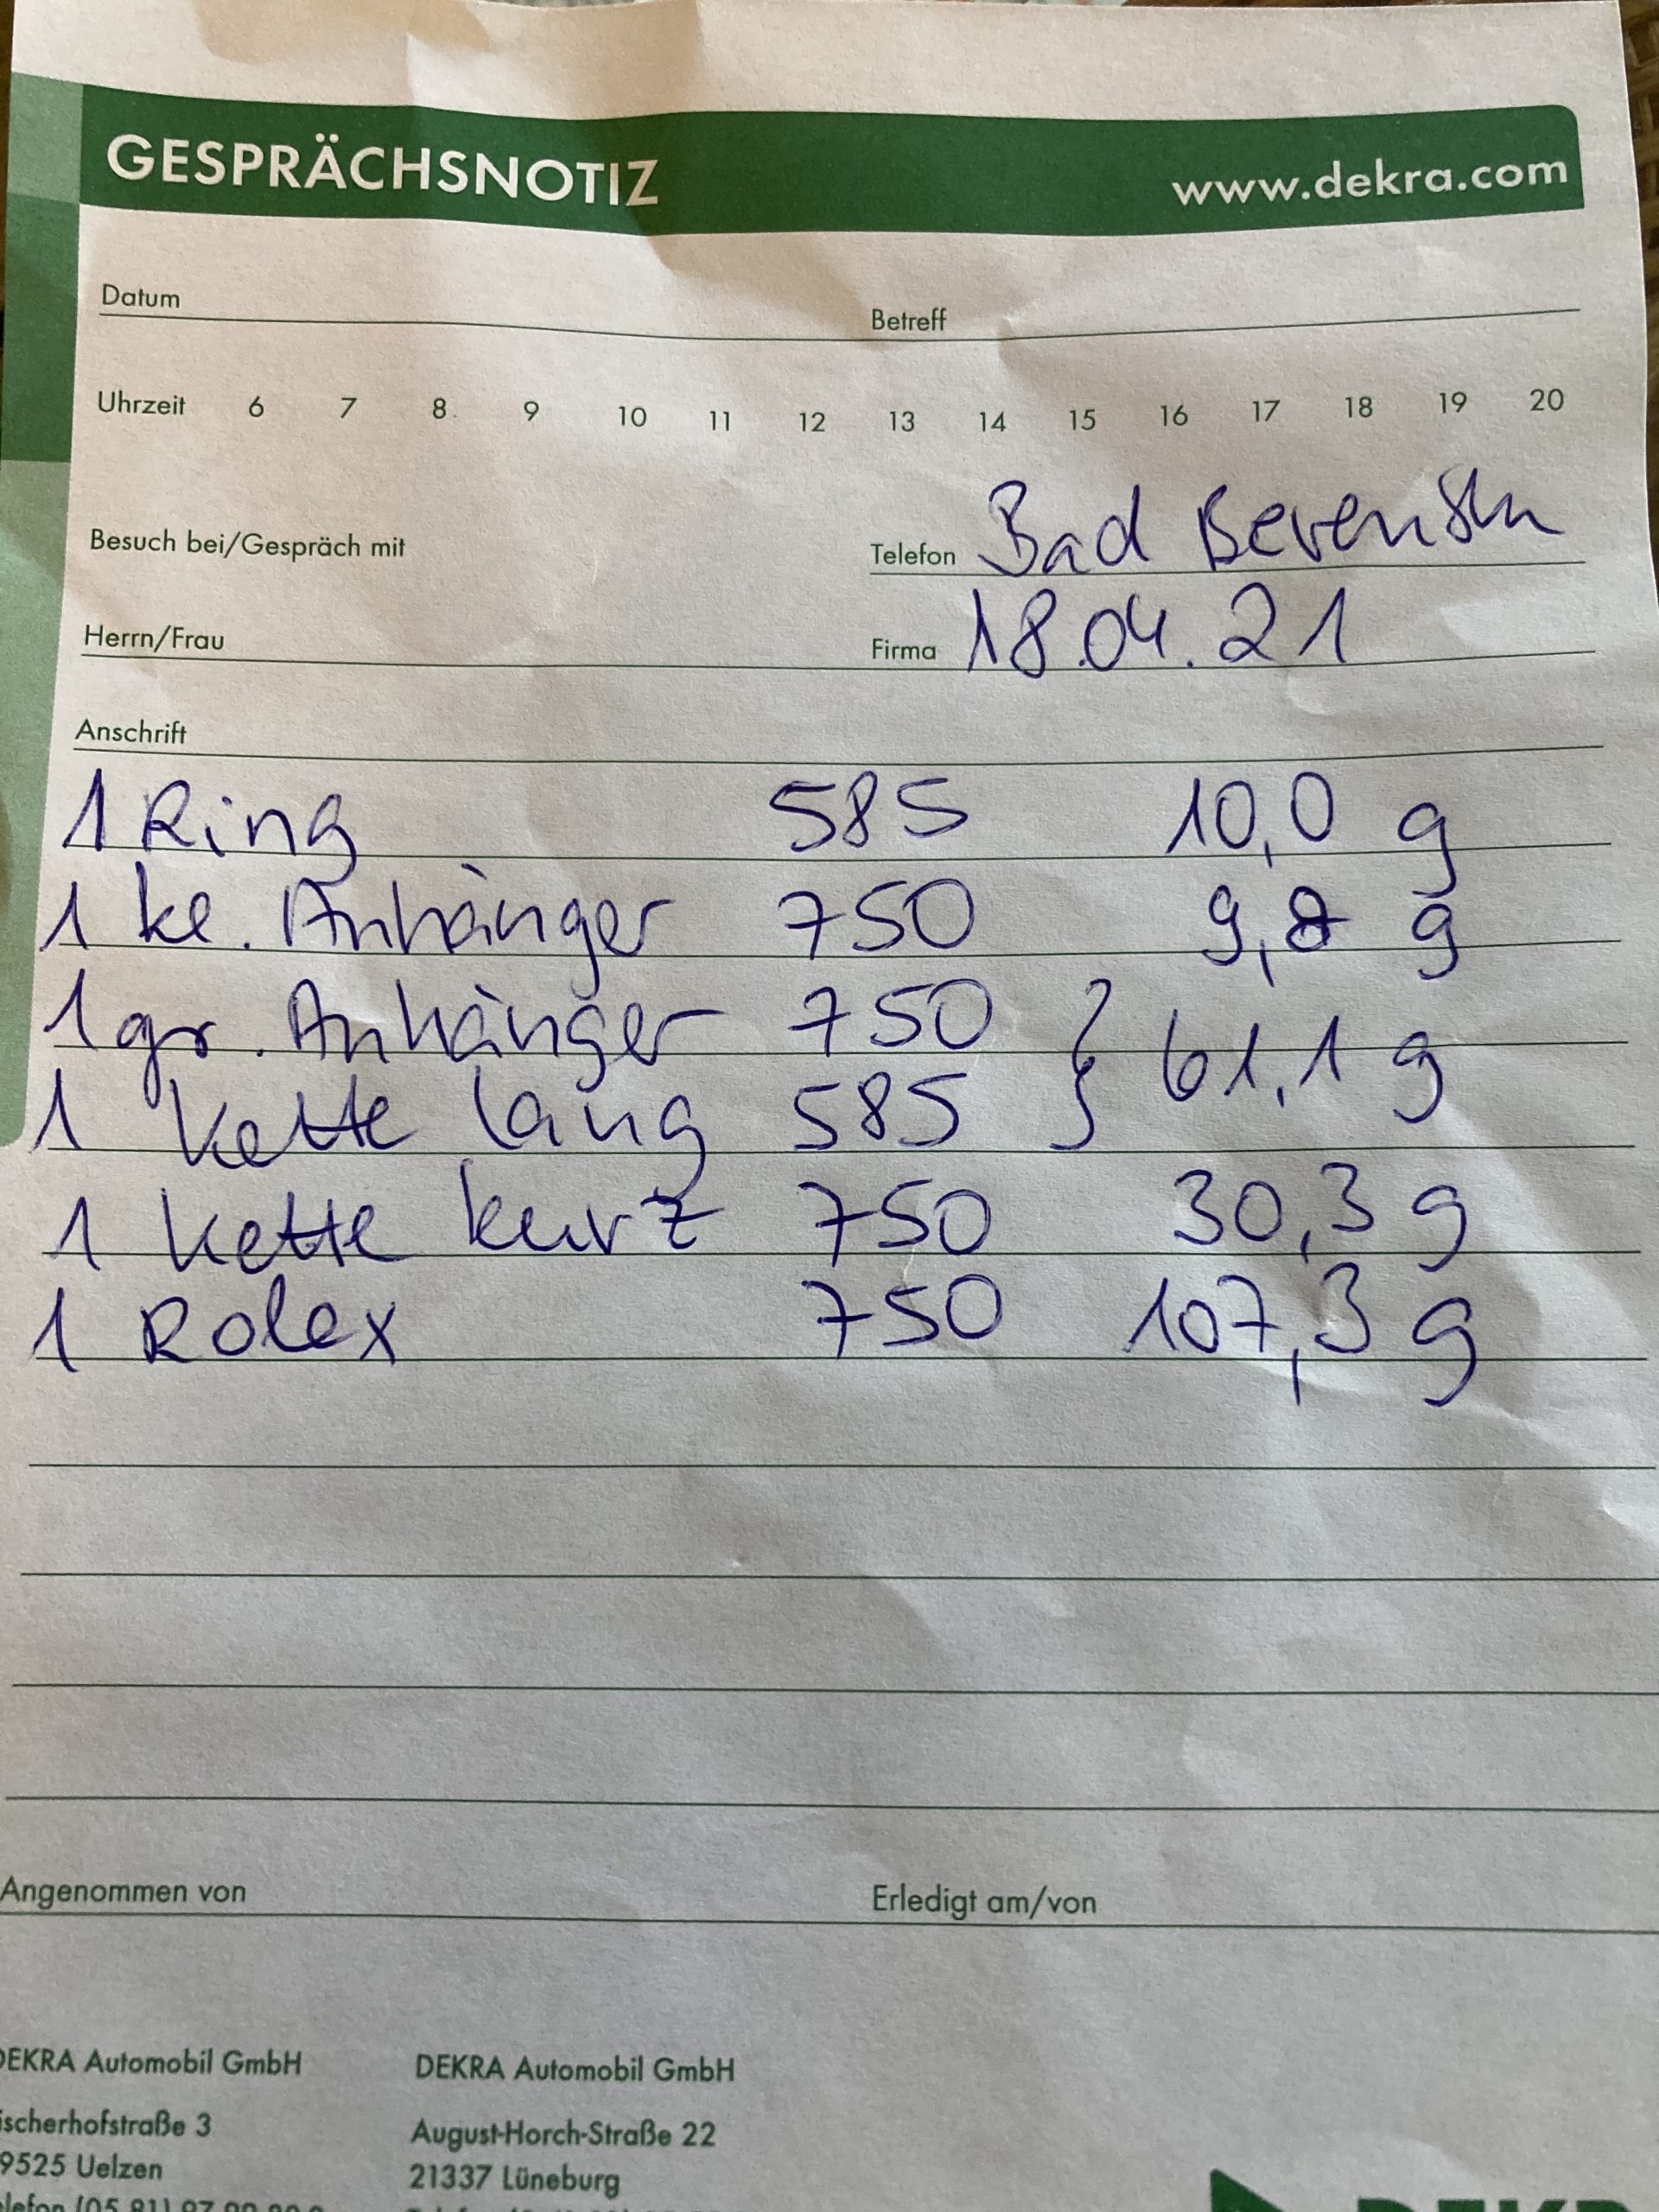 GESPRÄCHSNOTIZ www.dekra.com
Datum Betreff
Uhrzeit 6 7 8 9 10 11 12 13 14 15 16 17 18 19 20
Besuch bei/Gespräch mit Telefon Bad Bevensen
Herrn/Frau Firma 18.04.21
Anschrift
1 Ring 585 10,0 g
1 kl. Anhänger 750 9,8 g
1 gr. Anhänger 750 } 61,1 g
1 Kette lang 585
1 Kette kurz 750 30,3 g
1 Rolex 750 107,3 g
Angenommen von Erledigt am/von
DEKRA Automobil GmbH DEKRA Automobil GmbH
ischerhofstraße 3 August-Horch-Straße 22
9525 Uelzen 21337 Lüneburg